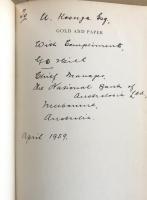 U. Kesnga Esq.
GOLD AND PAPER
With Compliments,
Chief Manager,
The National Bank of
Australasia Ltd,
Melbourne,
Australia.
April 1959.